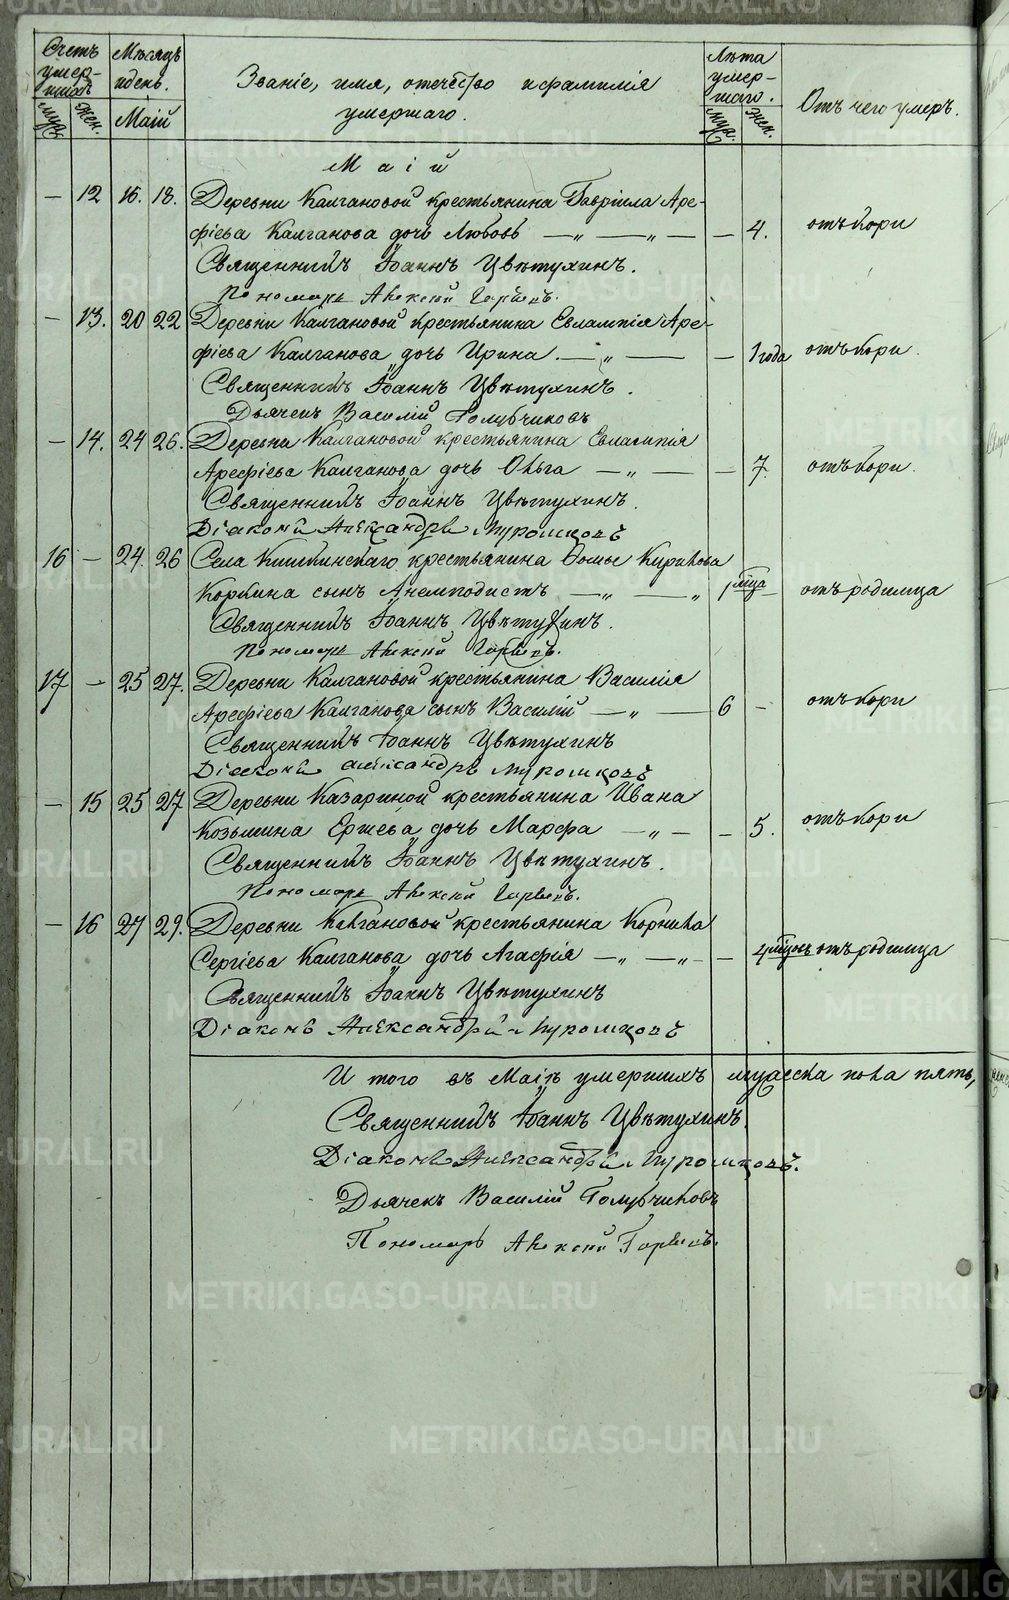 Счетъ умер-шихъ
Мѣсяцъ и день.
Званіе, имя, отечество и фамилія умершаго.
Лѣта умер-шаго.
Отъ чего умеръ.
муж.
жен.
Маій
муж.
жен.
Маій
— 12 16. 18. Деревни Калгановой крестьянина Гавріила Аре-
фіева Калганова дочь Любовь — „ — „ — — 4. отъ кори
Священникъ Іоаннъ Цвѣтухинъ.
Пономарь Алексій
— 13. 20 22 Деревни Калгановой крестьянина Евлампія Аре-
фіева Калганова дочь Ирина. — „ — — 1 года отъ кори.
Священникъ Іоаннъ Цвѣтухинъ.
Дьячекъ Василій Голубчиковъ
— 14. 24 26. Деревни Калгановой крестьянина Евлампія
Арефіева Калганова дочь Ольга — „ — — 7. отъ кори.
Священникъ Іоаннъ Цвѣтухинъ.
Діаконъ Александръ
16 — 24. 26 Села крестьянина Ѳомы Кирикова
сынъ Анемподистъ — „ — „ 1 мца — отъ родимца
Священникъ Іоаннъ Цвѣтухинъ.
Пономарь Алексій
17 — 25 27. Деревни Калгановой крестьянина Василія
Арефіева Калганова сынъ Василій — „ — 6 — отъ кори
Священникъ Іоаннъ Цвѣтухинъ
Діаконъ Александръ
— 15 25 27 Деревни Казариной крестьянина Ивана
Козьмина Ершева дочь Марфа — „ — — 5. отъ кори
Священникъ Іоаннъ Цвѣтухинъ.
Пономарь Алексій
— 16 27 29. Деревни Калгановой крестьянина Корнила
Сергіева Калганова дочь Агафія — „ — „ — — 4 отъ родимца
Священникъ Іоаннъ Цвѣтухинъ
Діаконъ Александръ
И того въ Маіѣ умершихъ мужеска пола пять,
Священникъ Іоаннъ Цвѣтухинъ.
Діаконъ Александръ
Дьячекъ Василій Голубчиковъ
Пономарь Алексій
METRIKI.GASO-URAL.RU